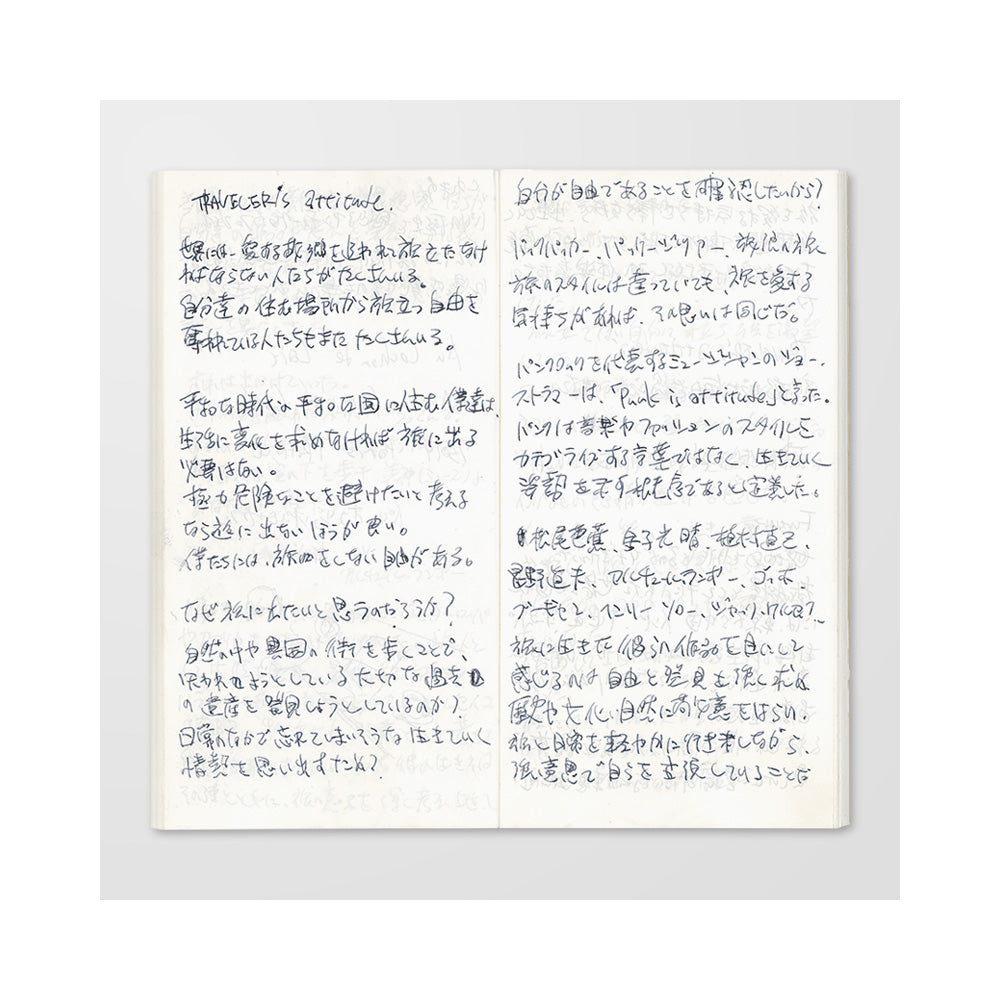 TRAVELER's attitude.
世界には、愛する故郷を追われて旅立たなけ
ればならない人たちがたくさんいる。
自分達の住む場所から旅立つ自由を
奪われている人たちもまたたくさんいる。
平和な時代の平和な国に住む僕達は、
生活に変化を求めなければ旅に出る
必要はない。
極力危険なことを避けたいと考える
なら旅に出ないほうが良い。
僕たちには、旅をしない自由がある。
なぜ旅に出たいと思うのだろうか?
自然の中や異国の街を歩くことで、
失われようとしている大切な過去
の遺産を発見しようとしているのか?
日常のなかで忘れてしまいそうな生きていく
情熱を思い出すため?
自分が自由であることを確認したいから?
バックパッカー、パッケージツアー、放浪の旅
旅のスタイルは違っていても、旅を愛する
気持ちがあれば、その思いは同じだ。
パンクロックを代表するミュージシャンのジョー・
ストラマーは、「Punk is attitude」と言った。
パンクは音楽やファッションのスタイルを
カテゴライズする言葉ではなく、生きていく
姿勢を示す概念であると定義した。
松尾芭蕉、金子光晴、植村直己、
星野道夫、アルチュールランボー、ゴッホ、
ゴーギャン、ヘンリー・ソロー、ジャック・ケルアック
旅に生きた彼らの作品を目にして
感じるのは自由と発見を強く求め
歴史や文化、自然に敬意をはらい、
旅と日常を軽やかに行き来しながら、
強い意思で自らを主張していることだ